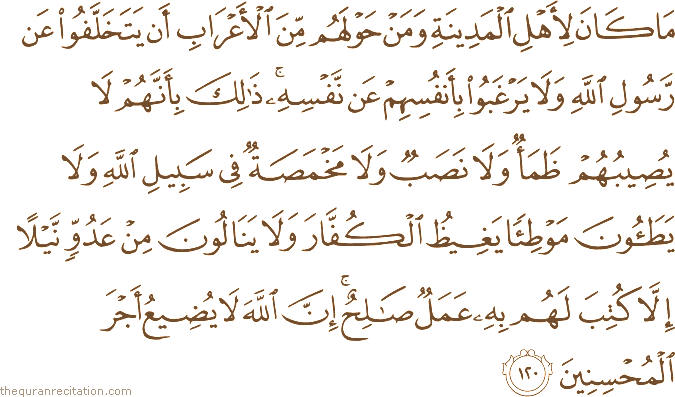 مَا كَانَ لِأَهْلِ ٱلْمَدِينَةِ وَمَنْ حَوْلَهُم مِّنَ ٱلْأَعْرَابِ أَن يَتَخَلَّفُوا۟ عَن
رَّسُولِ ٱللَّهِ وَلَا يَرْغَبُوا۟ بِأَنفُسِهِمْ عَن نَّفْسِهِۦ ۚ ذَٰلِكَ بِأَنَّهُمْ لَا
يُصِيبُهُمْ ظَمَأٌ وَلَا نَصَبٌ وَلَا مَخْمَصَةٌ فِى سَبِيلِ ٱللَّهِ وَلَا
يَطَـُٔونَ مَوْطِئًا يَغِيظُ ٱلْكُفَّارَ وَلَا يَنَالُونَ مِنْ عَدُوٍّ نَّيْلًا
إِلَّا كُتِبَ لَهُم بِهِۦ عَمَلٌ صَـٰلِحٌ ۚ إِنَّ ٱللَّهَ لَا يُضِيعُ أَجْرَ
ٱلْمُحْسِنِينَ ١٢٠
thequranrecitation.com